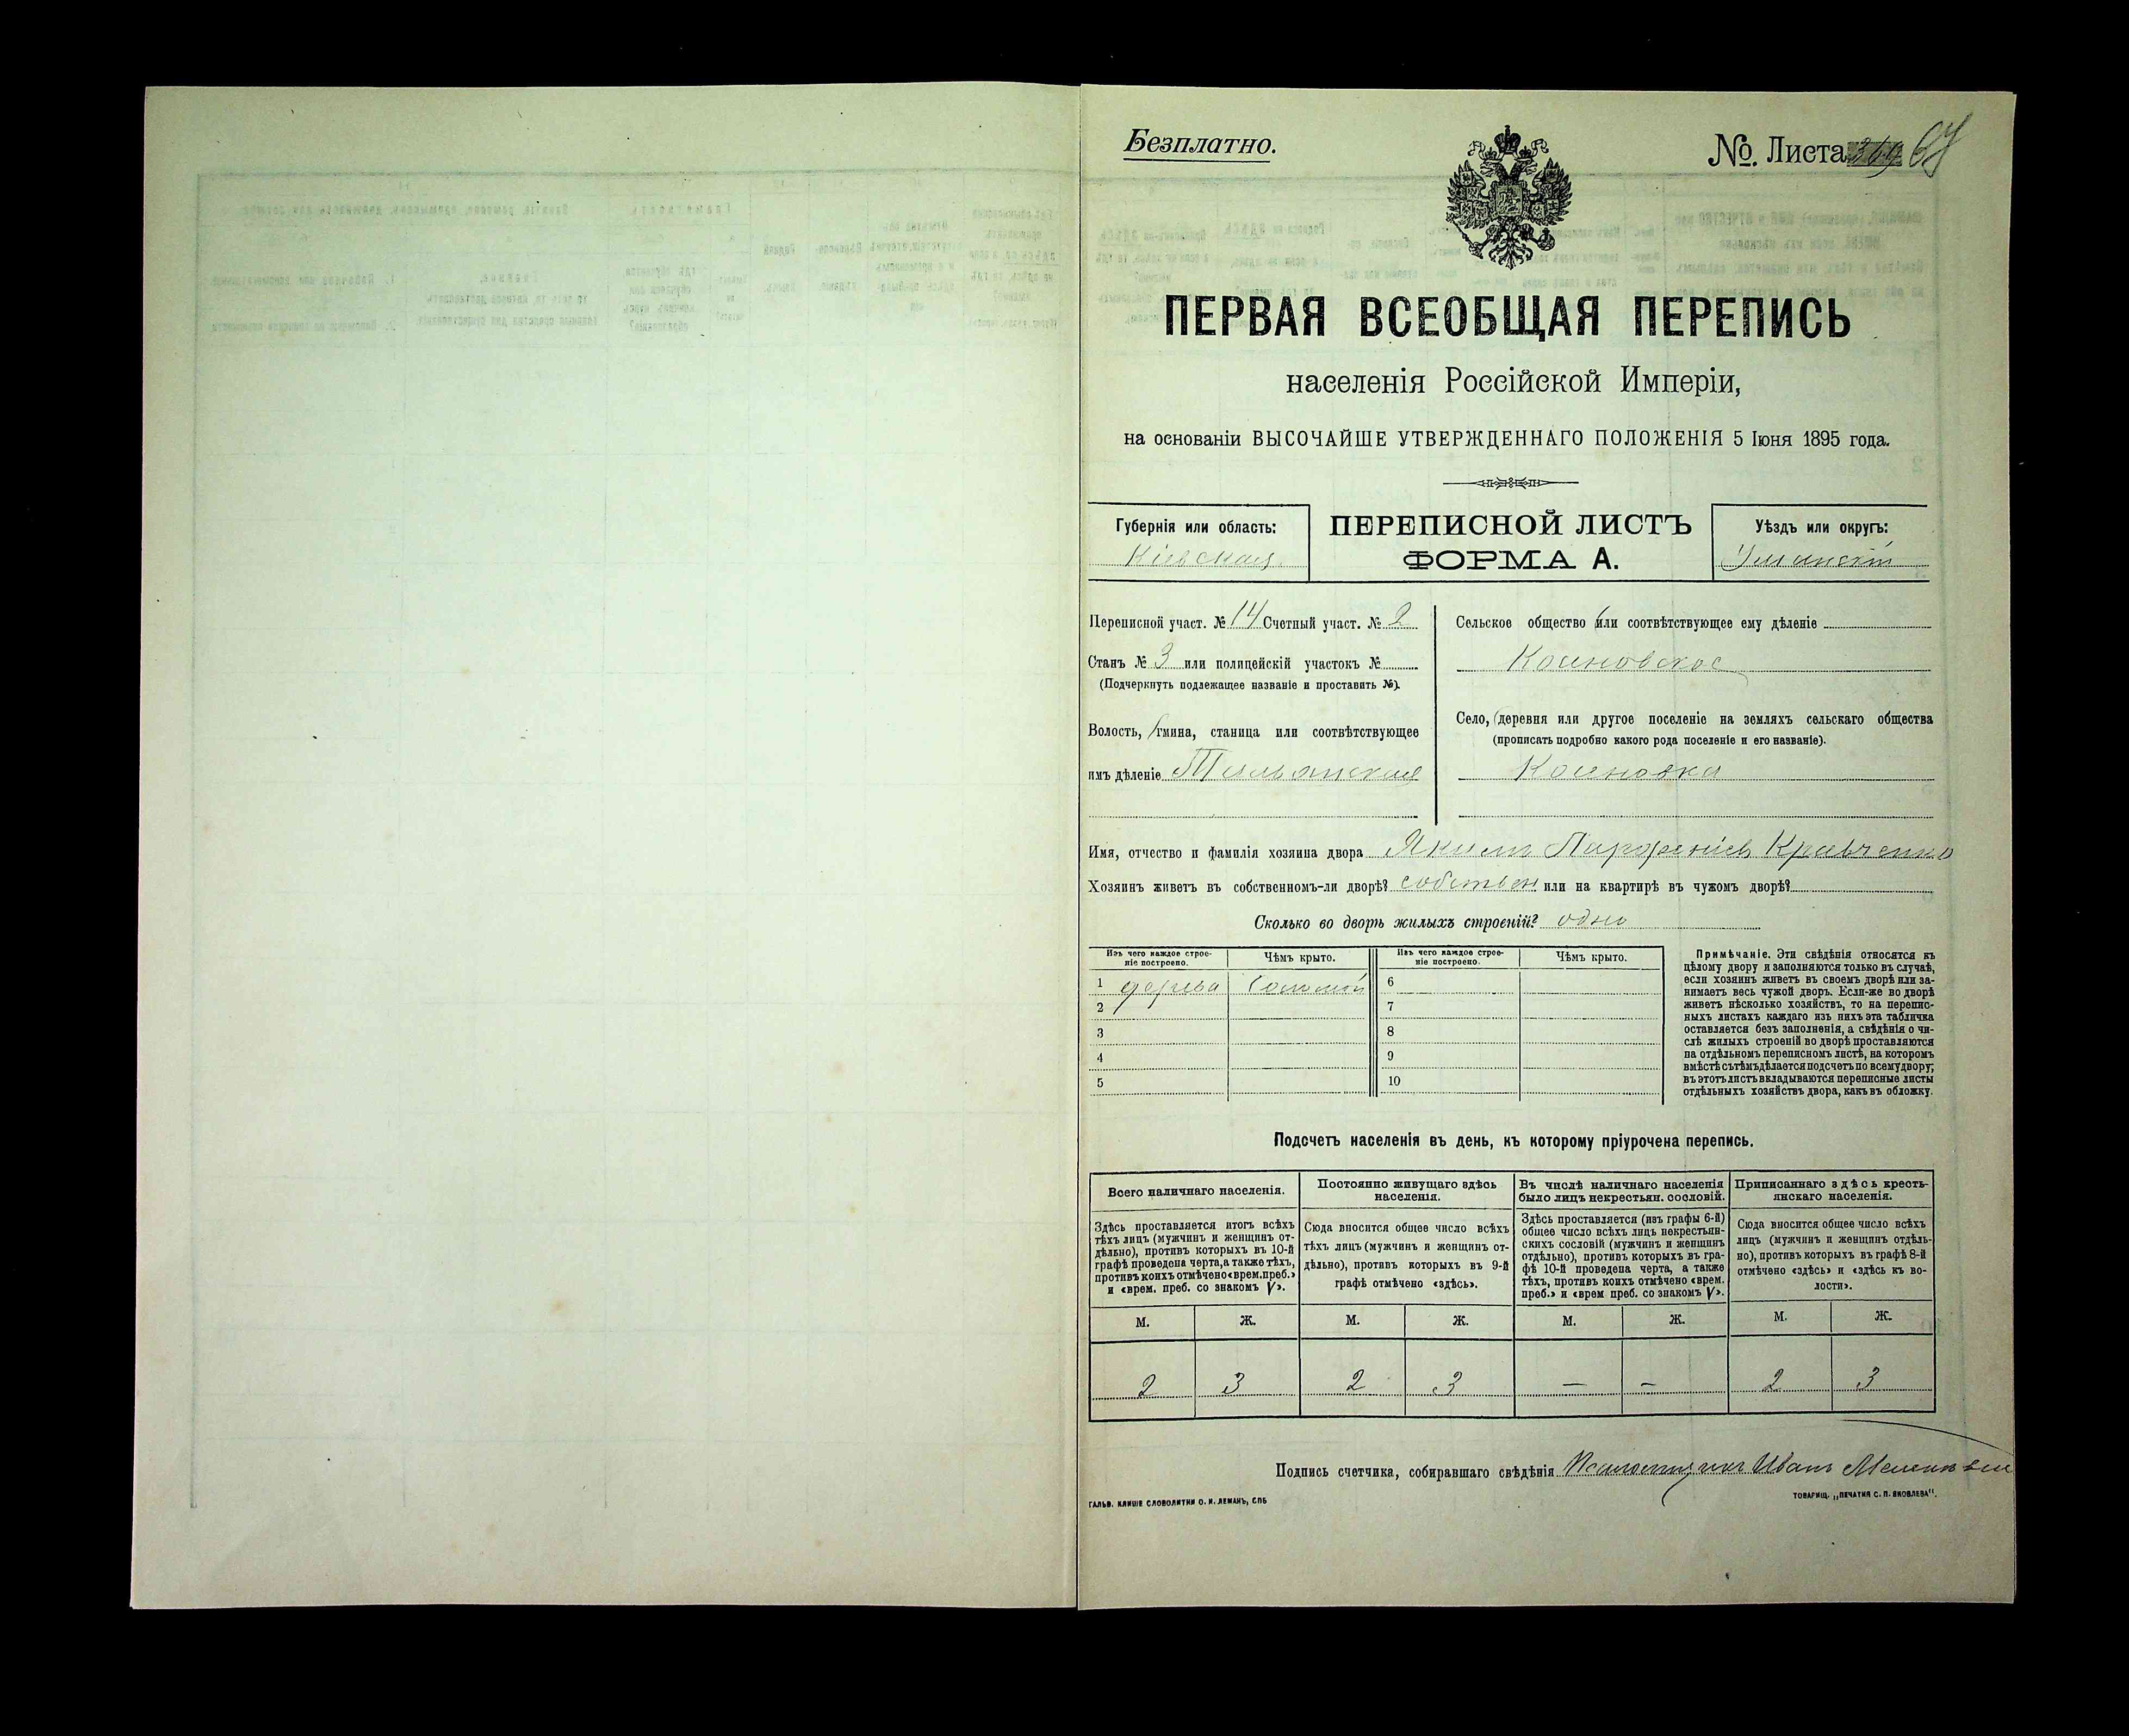 Безплатно.
№. Листа
ПЕРВАЯ ВСЕОБЩАЯ ПЕРЕПИСЬ
населенія Россійской Имперіи,
на основаніи ВЫСОЧАЙШЕ УТВЕРЖДЕННАГО ПОЛОЖЕНІЯ 5 Іюня 1895 года.
Губернія или область:
Кіевская
ПЕРЕПИСНОЙ ЛИСТЪ
ФОРМА А.
Уѣздъ или округъ:
Уманскій
Переписной участ. № 14 Счетный участ. № 2
Станъ № 3 или полицейскій участокъ №
(Подчеркнуть подлежащее названіе и проставить №).
Волость, гмина, станица или соотвѣтствующее
имъ дѣленіе Тальянская
Сельское общество или соотвѣтствующее ему дѣленіе
Косеновское
Село, деревня или другое поселеніе на земляхъ сельскаго общества
(прописать подробно какого рода поселеніе и его названіе).
Косеновка
Имя, отчество и фамилія хозяина двора Якимъ Парфеніевъ Кравченко
Хозяинъ живетъ въ собственномъ-ли дворѣ? собствен или на квартирѣ въ чужомъ дворѣ?
Сколько во дворѣ жилыхъ строеній? одно
Изъ чего каждое строе-
ніе построено.
Чѣмъ крыто.
Изъ чего каждое строе-
ніе построено.
Чѣмъ крыто.
1 дерева соломой 6
2 7
3 8
4 9
5 10
Примѣчаніе. Эти свѣдѣнія относятся къ
цѣлому двору и заполняются только въ случаѣ,
если хозяинъ живетъ въ своемъ дворѣ или за-
нимаетъ весь чужой дворъ. Если-же во дворѣ
живетъ нѣсколько хозяйствъ, то на перепис-
ныхъ листахъ каждаго изъ нихъ эта табличка
оставляется безъ заполненія, а свѣдѣнія о чи-
слѣ жилыхъ строеній во дворѣ проставляются
на отдѣльномъ переписномъ листѣ, на которомъ
вмѣстѣ съ тѣмъ дѣлается подсчетъ по всему двору;
въ этотъ листъ вкладываются переписные листы
отдѣльныхъ хозяйствъ двора, какъ въ обложку.
Подсчетъ населенія въ день, къ которому пріурочена перепись.
Всего наличнаго населенія.
Здѣсь проставляется итогъ всѣхъ
тѣхъ лицъ (мужчинъ и женщинъ от-
дѣльно), противъ которыхъ въ 10-й
графѣ проведена черта, а также тѣхъ,
противъ коихъ отмѣчено «врем. преб.»
и «врем. преб. со знакомъ V».
Постоянно живущаго здѣсь
населенія.
Сюда вносится общее число всѣхъ
тѣхъ лицъ (мужчинъ и женщинъ от-
дѣльно), противъ которыхъ въ 9-й
графѣ отмѣчено «здѣсь».
Въ числѣ наличнаго населенія
было лицъ некрестьян. сословій.
Здѣсь проставляется (изъ графы 6-й)
общее число всѣхъ лицъ некрестьян-
скихъ сословій (мужчинъ и женщинъ
отдѣльно), противъ которыхъ въ гра-
фѣ 10-й проведена черта, а также
тѣхъ, противъ коихъ отмѣчено «врем.
преб.» и «врем преб. со знакомъ V».
Приписаннаго здѣсь кресть-
янскаго населенія.
Сюда вносится общее число всѣхъ
лицъ (мужчинъ и женщинъ отдѣль-
но), противъ которыхъ въ графѣ 8-й
отмѣчено «здѣсь» и «здѣсь къ во-
лости».
М. Ж. М. Ж. М. Ж. М. Ж.
2 3 2 3 — — 2 3
Подпись счетчика, собиравшаго свѣдѣнія Иванъ
ГАЛЬВ. КЛИШЕ СЛОВОЛИТНИ О. И. ЛЕМАНЪ, СПБ
ТОВАРИЩ. „ПЕЧАТНЯ С. П. ЯКОВЛЕВА“.